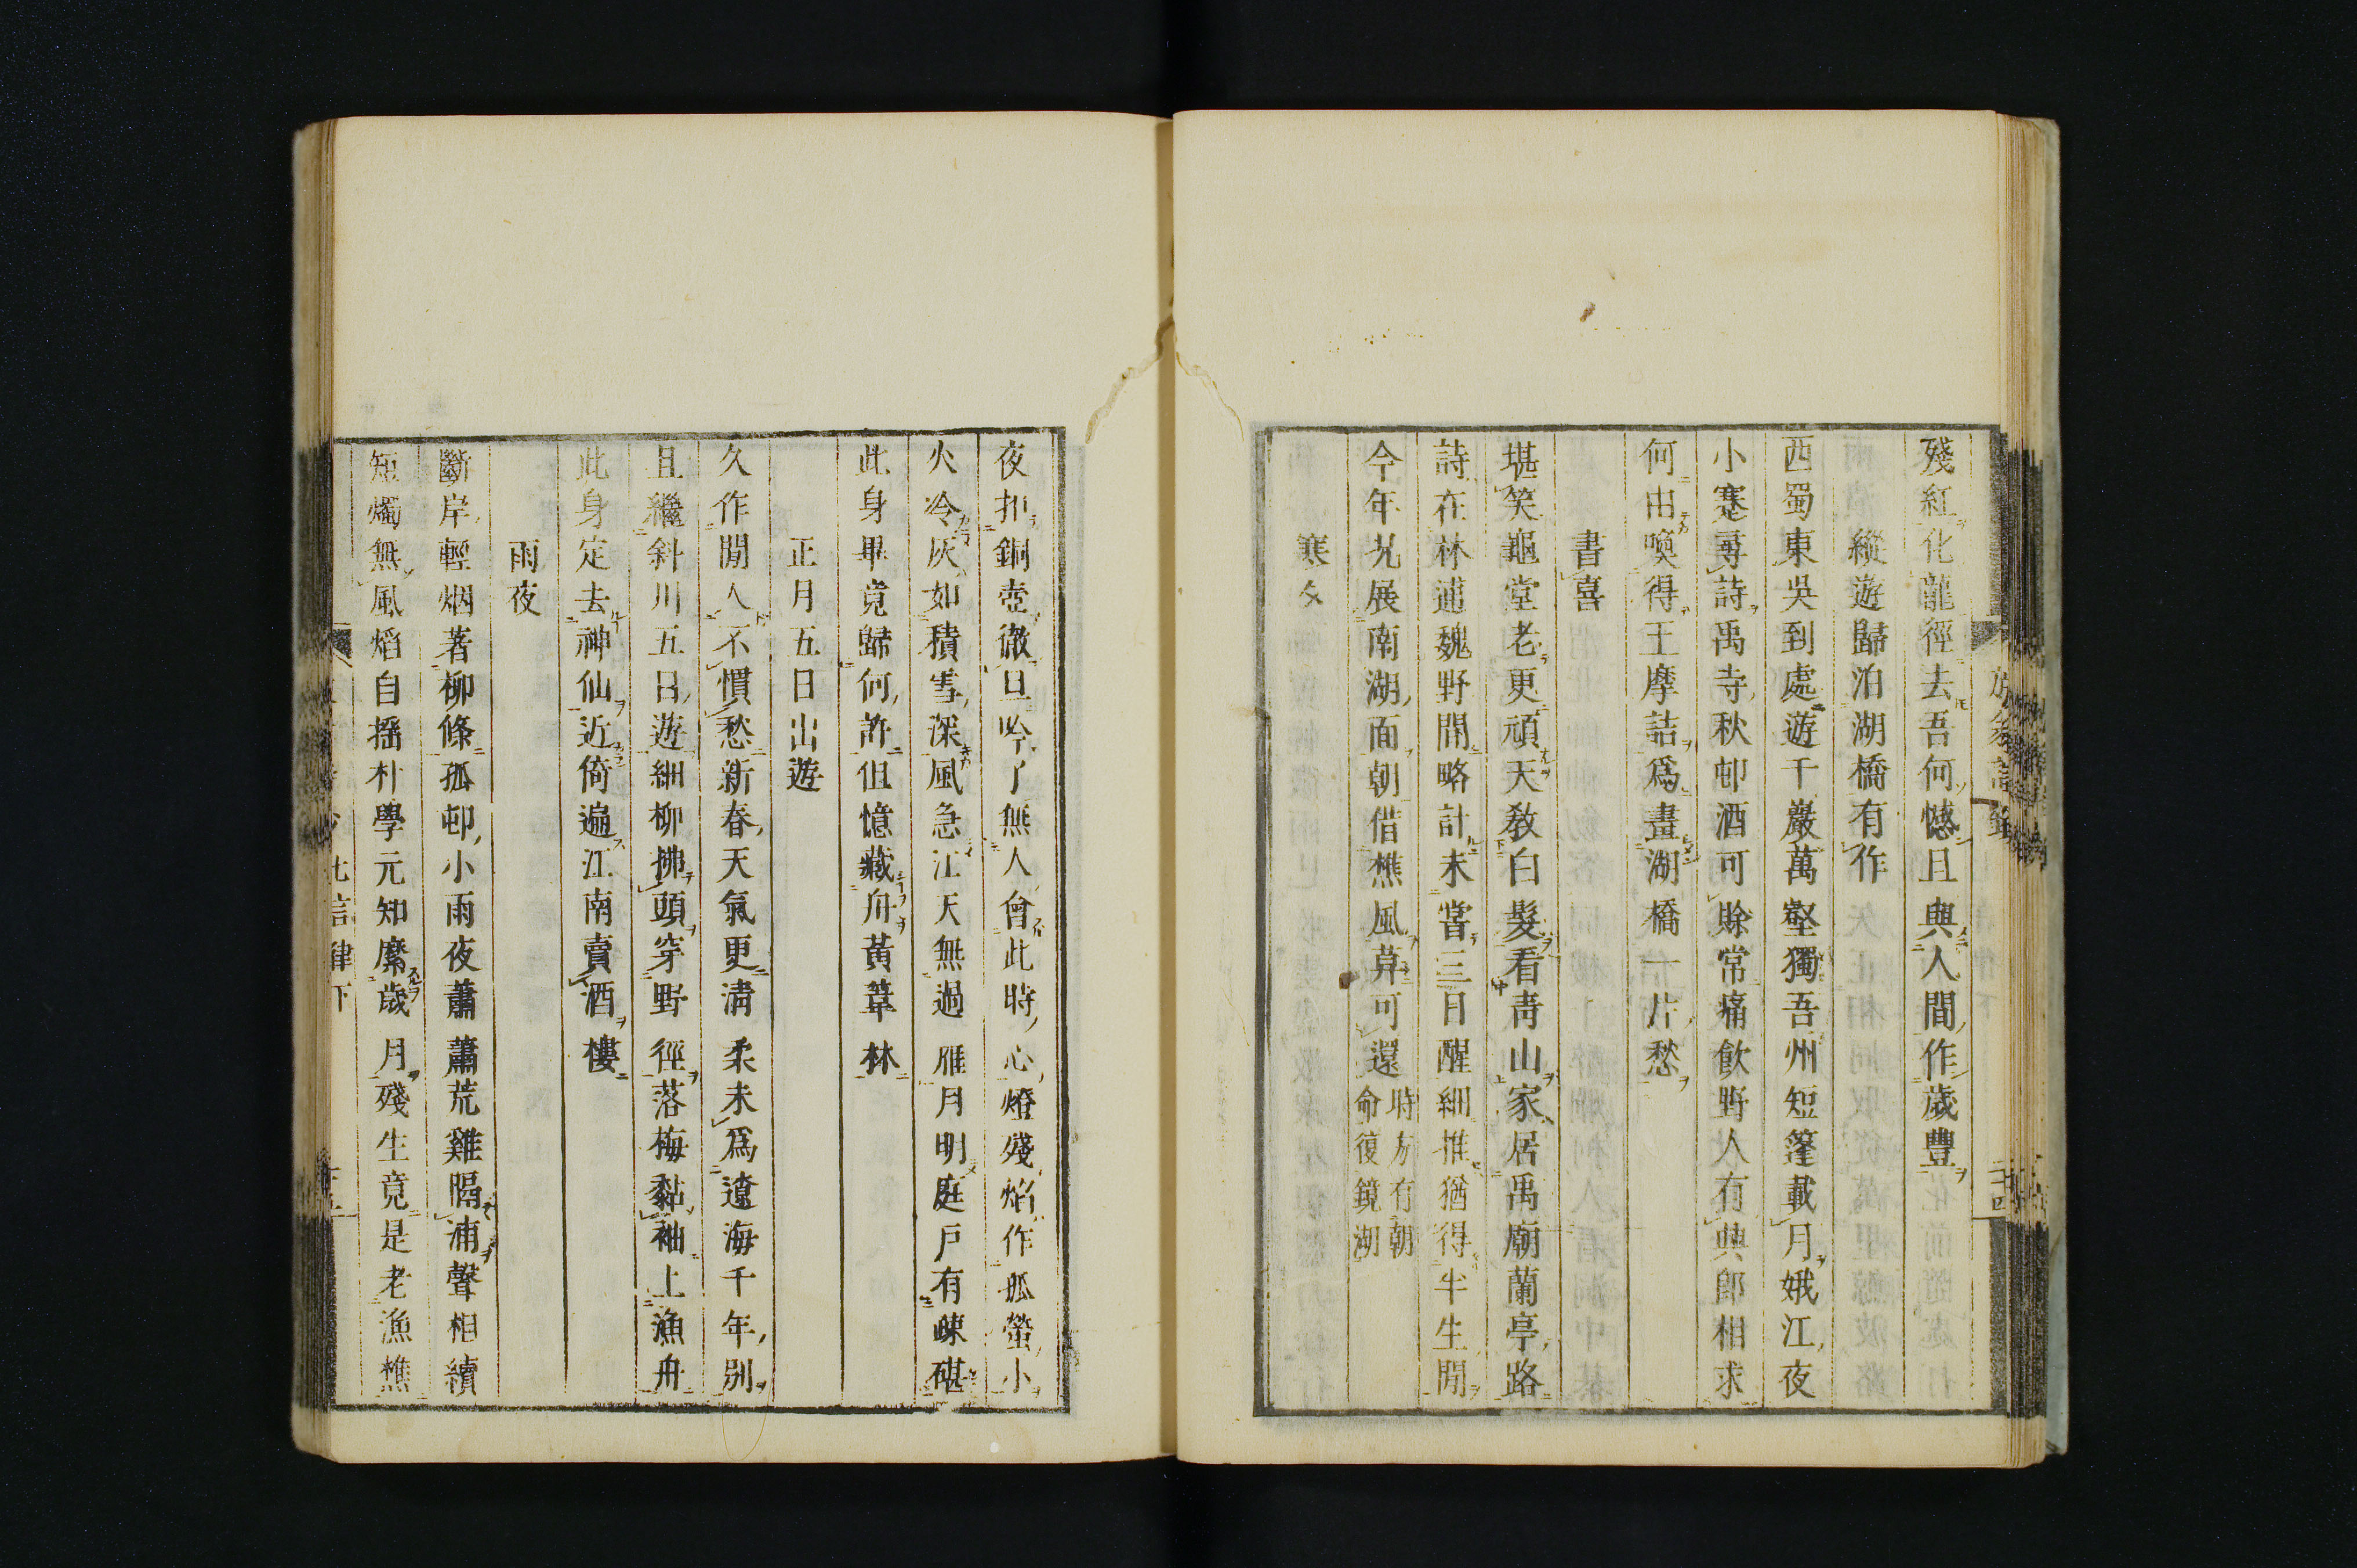 殘紅化龍徑去吾何憾且與人間作歲豐
縱遊歸泊湖橋有作
西蜀東吳到處遊千巖萬壑獨吾州短篷載月娥江夜
小蹇尋詩禹寺秋邨酒可賖常痛飲野人有興卽相求
何由喚得王摩詰爲畫湖橋一片愁
書喜
堪笑龜堂老更頑天敎白髮看靑山家居禹廟蘭亭路
詩在林逋魏野閒略計未甞三日醒細推猶得半生閒
今年况展南湖面朝借樵風暮可還
時方有朝
命復鏡湖
寒夕
夜扣銅壺徹旦吟了無人會此時心燈殘焰作孤螢小
火冷灰如積雪深風急江天無過雁月明庭戶有疎碪
此身畢竟歸何許但憶藏舟黃葦林
正月五日出遊
久作閒人不慣愁新春天氣更淸柔未爲遼海千年別
且繼斜川五日遊細柳拂頭穿野徑落梅黏袖上漁舟
此身定去神仙近倚遍江南賣酒樓
雨夜
斷岸輕烟著柳條孤邨小雨夜蕭蕭荒雞隔浦聲相續
短燭無風焰自搖朴學元知縻歲月殘生竟是老漁樵
七言律下